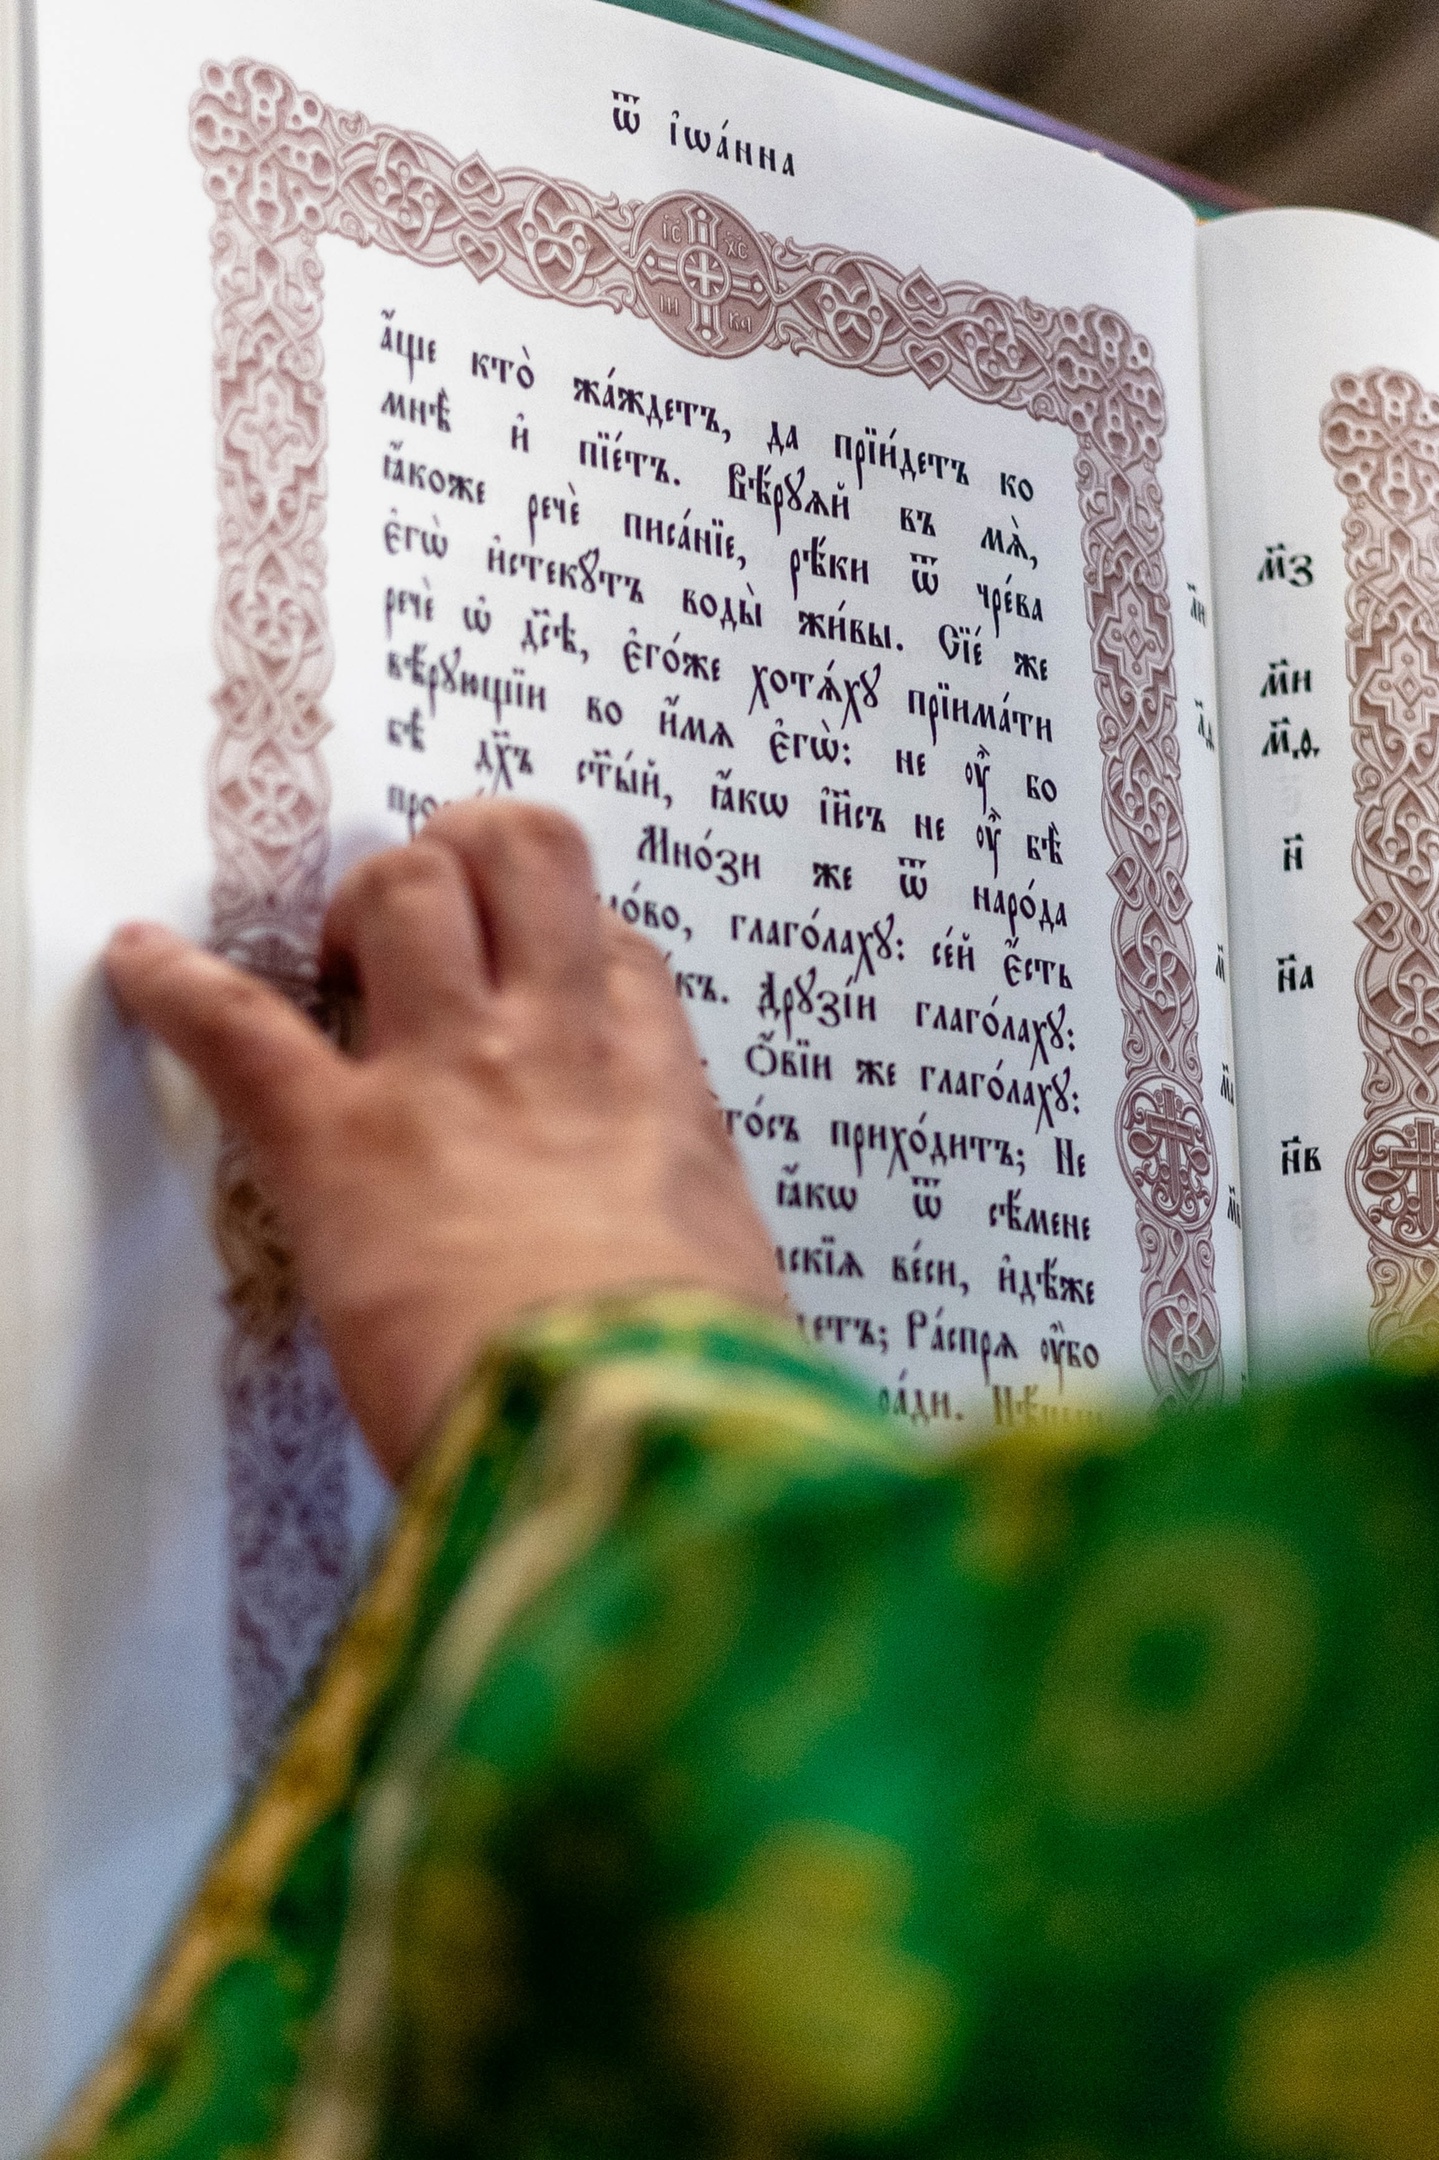 ѿ і҆ѡа́нна
І҆С Х҃С
НИ КА
а҆́ще кто̀ жа́ждетъ, да прїи́детъ ко
мнѣ̀ и҆ пїе́тъ. Вѣ́рꙋѧй въ мѧ̀,
ꙗ҆́коже речѐ писа́нїе, рѣ́ки ѿ чре́ва
є҆гѡ̀ и҆стекꙋ́тъ воды̀ жи́вы. Сїе́ же
речѐ ѡ҆ дс҃ѣ, є҆го́же хотѧ́хꙋ прїима́ти
вѣ́рꙋющїи во и҆́мѧ є҆гѡ̀: не ᲂу҆̀ бо
бѣ̀ дх҃ъ ст҃ы́й, ꙗ҆́кѡ і҆и҃съ не ᲂу҆̀ бѣ̀
Мно́зи же ѿ наро́да
глаго́лахꙋ: се́й є҆́сть
Дрꙋзі́и глаго́лахꙋ:
Ѻ҆́вїи же глаго́лахꙋ:
прихо́дитъ; Не
ꙗ҆́кѡ ѿ сѣ́мене
ве́си, и҆дѣ́же
Ра́спрѧ ᲂу҆̀бо
ра́ди.
м҃з
м҃и
м҃ѳ
н҃
н҃а
н҃в